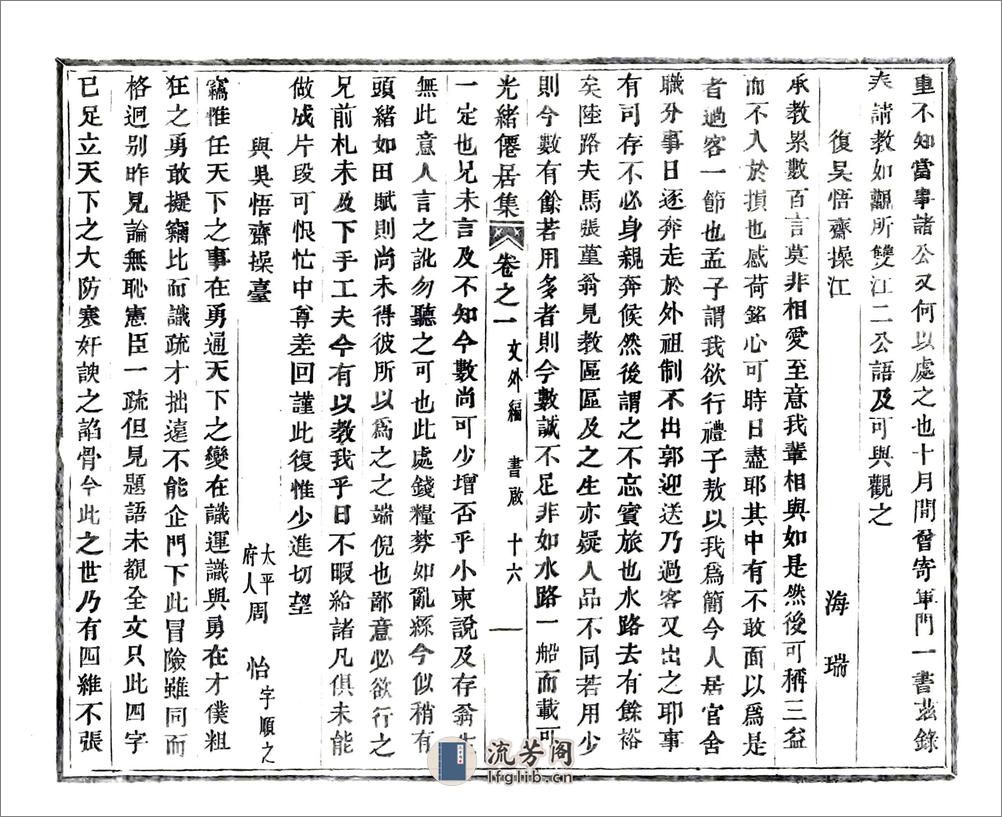 重不知當事諸公又何以處之也十月間曾寄軍門一書茲錄
奉請教如觀所雙江二公語及可與觀之
復吳悟齋操江
海瑞
承教累數百言莫非相愛至意我輩相與如是然後可稱三益
而不入於損也感荷銘心可時日盡耶其中有不敢面以爲是
者過客一節也孟子謂我欲行禮子敖以我爲簡今人居官舍
職分事日逐奔走於外祖制不出郭迎送乃過客又出之耶事
有司存不必身親奔候然後謂之不忘賓旅也水路去有餘裕
矣陸路夫馬張堇翁見教區區及之生亦疑人品不同若用少
則今數有餘若用多者則今數誠不足非如水路一船而載可
光緒僊居集 卷之一 文外編 書啟 十六
一定也兄未言及不知今數尚可少增否乎小柬說及存翁生
無此意人言之訛勿聽之可也此處錢糧棼如亂絲今似稍有
頭緒如田賦則尚未得彼所以爲之之端倪也鄙意必欲行之
兄前札未及下手工夫今有以教我乎日不暇給諸凡俱未能
做成片段可恨忙中尊差回謹此復惟少進切望
與吳悟齋操臺
太平府人周怡字順之
竊惟任天下之事在勇通天下之變在識運識與勇在才僕粗
狂之勇敢擬竊比而識疏才拙遠不能企門下此冒險雖同而
格迥别昨見論無恥憲臣一疏但見題語未覩全文只此四字
已足立天下之大防寒奸諛之諂骨今此之世乃有四維不張
流芳阁
lfglib.cn